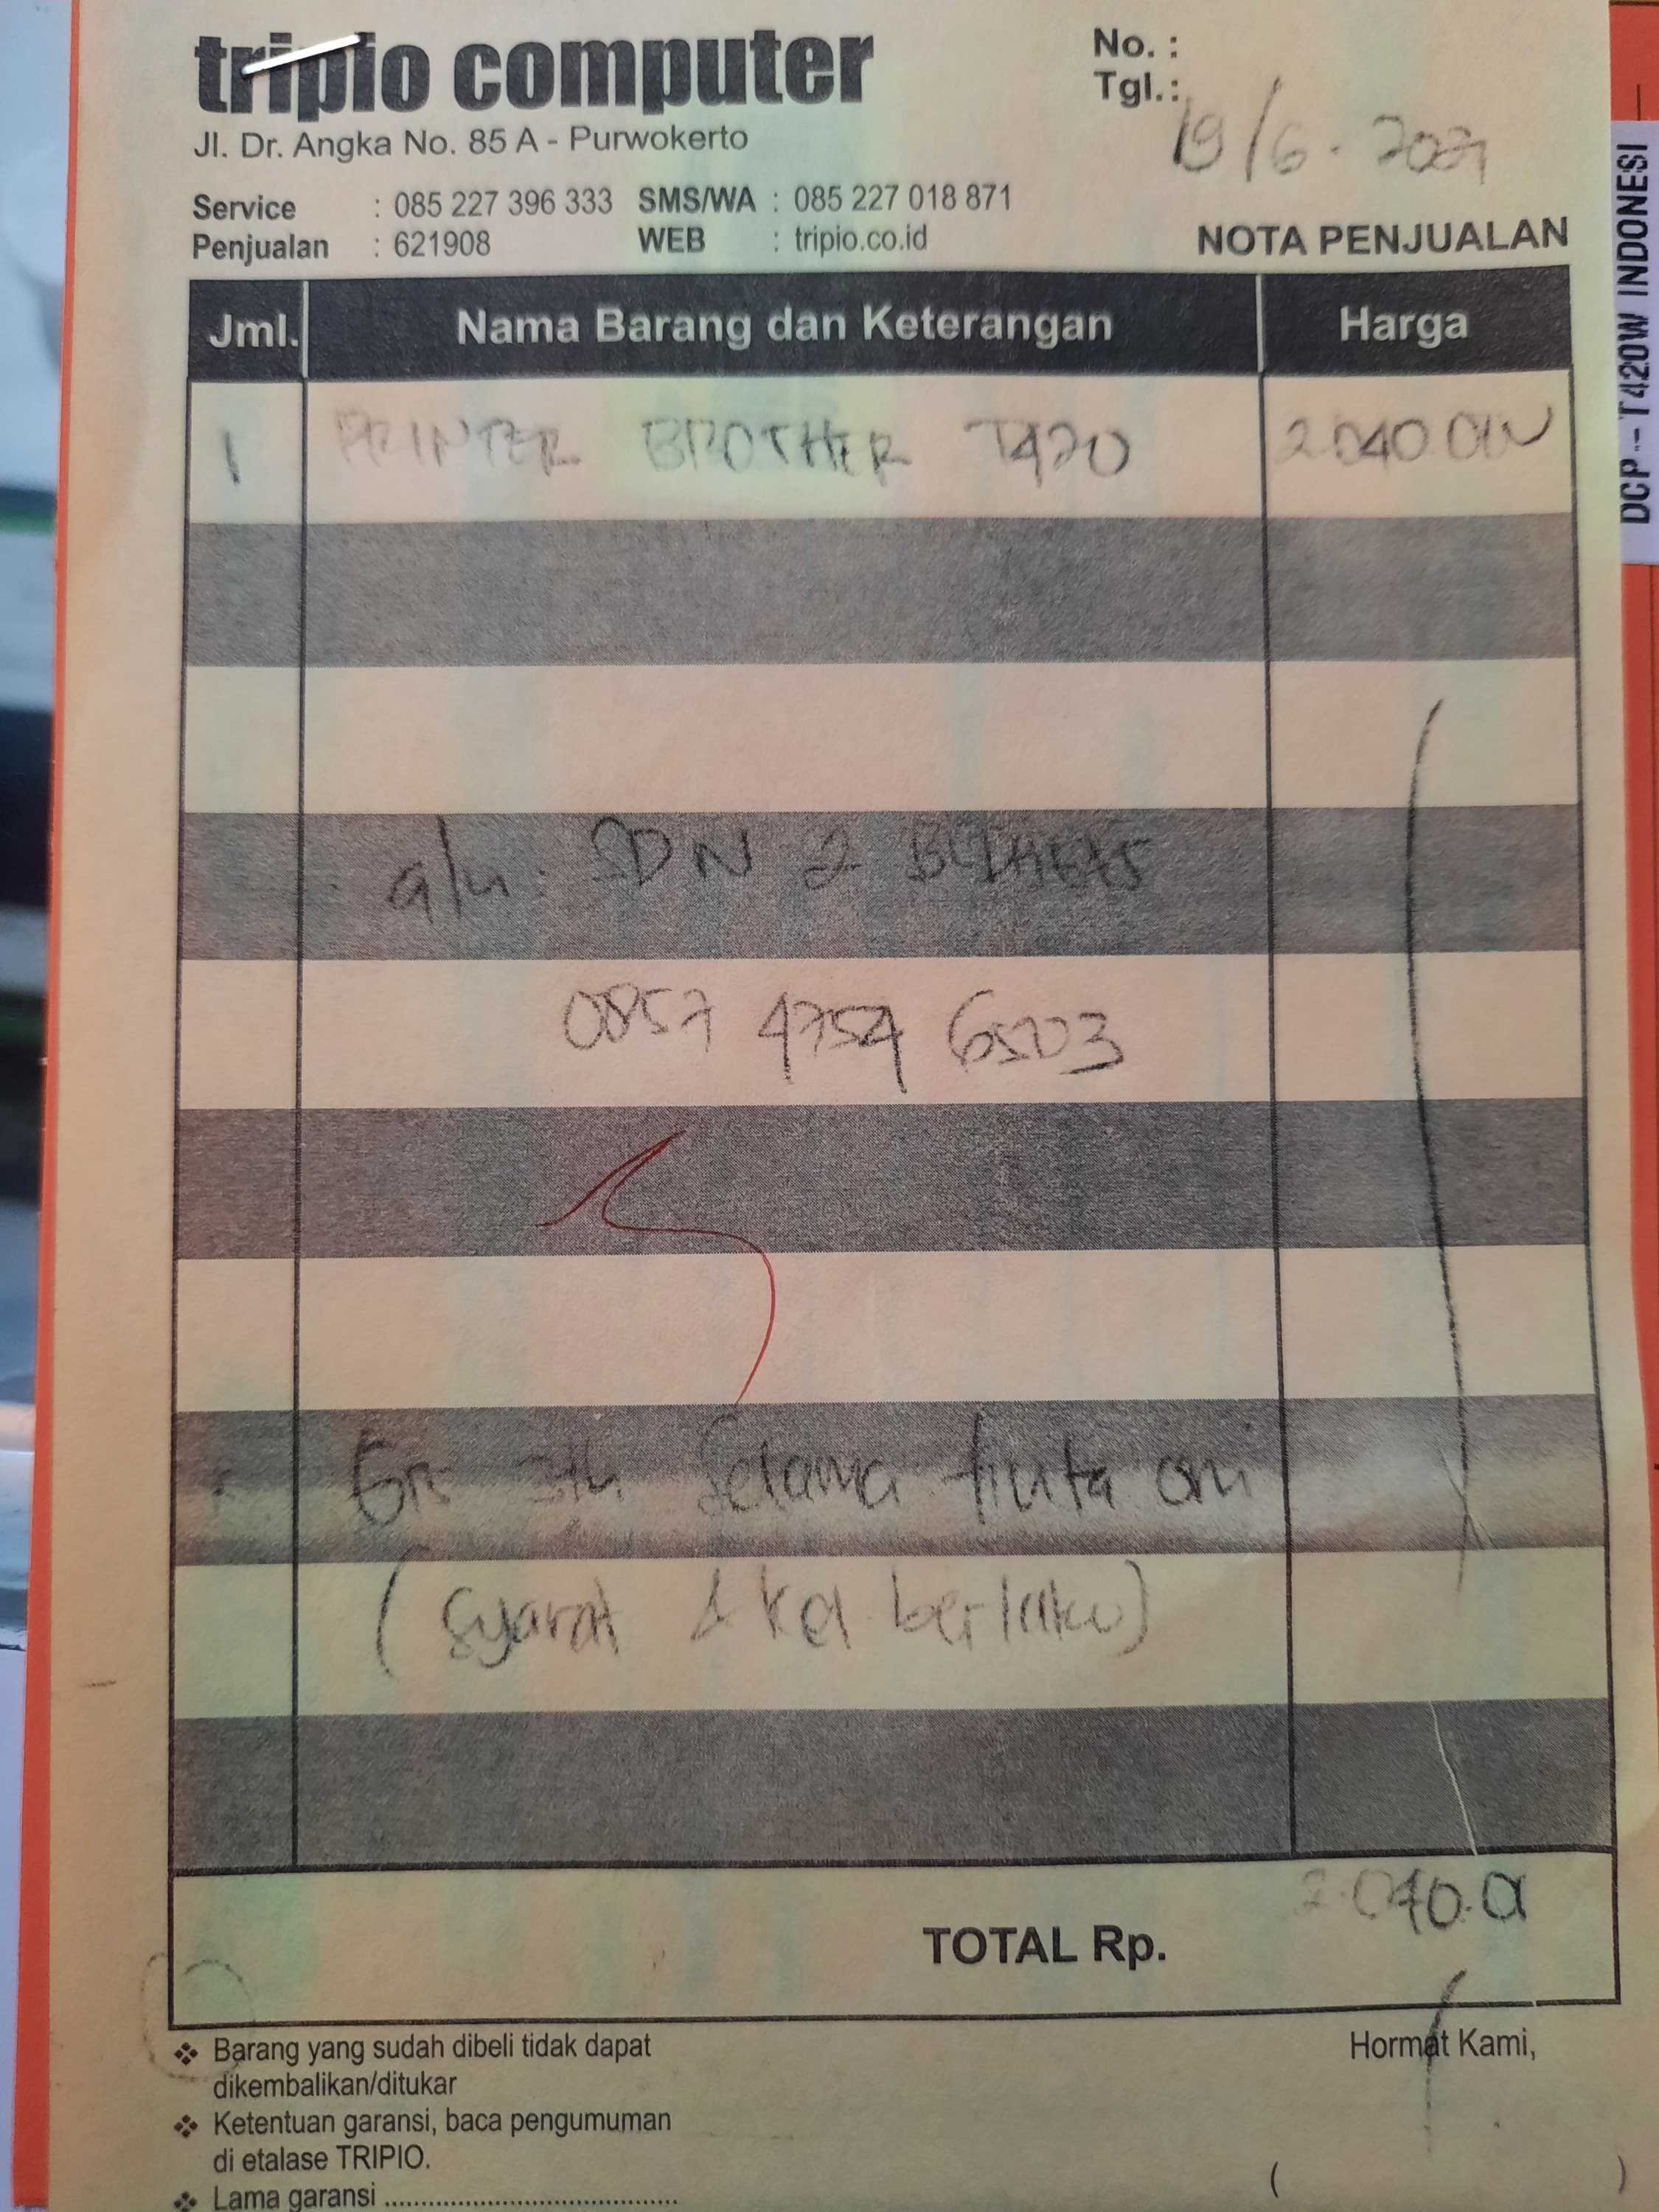 tripio computer
Jl. Dr. Angka No. 85 A - Purwokerto
No. :
Tgl.: 19/6 - 2024
Service : 085 227 396 333 SMS/WA : 085 227 018 871
Penjualan : 621908 WEB : tripio.co.id
NOTA PENJUALAN
Jml. Nama Barang dan Keterangan Harga
1 PRINTER BROTHER T420 2.040.000
a/n : SDN 2
0857 4754 6503
3th selama tinta ori
(syarat & ket berlaku)
TOTAL Rp.
Barang yang sudah dibeli tidak dapat
dikembalikan/ditukar
Ketentuan garansi, baca pengumuman
di etalase TRIPIO.
Lama garansi ........................................
Hormat Kami,
( )
DCP--T420W INDONESI